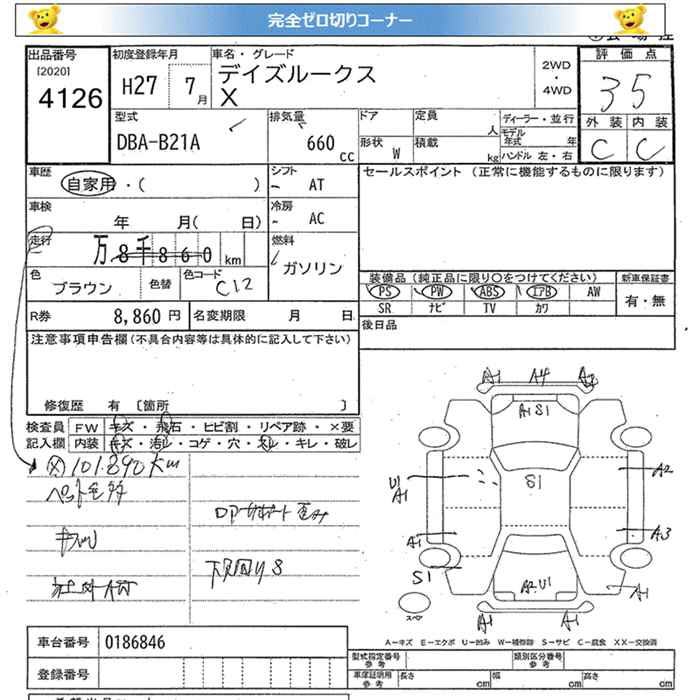 完全ゼロ切りコーナー
出品番号
[2020]
4126
初度登録年月
H27 7月
車名・グレード
デイズルークス
X
2WD
・
4WD
評価点
35
外装 内装
C C
型式
DBA-B21A
排気量
660 cc
ドア
形状 W
定員 人
積載 kg
ディーラー・並行
モデル年式 年
ハンドル 左・右
車歴
自家用・( )
シフト
AT
車検
年 月( 日)
冷房
AC
走行
万8千860 km
燃料
ガソリン
色
ブラウン
色替
色コード
C12
セールスポイント (正常に機能するものに限ります)
装備品(純正品に限り○をつけてください)
PS PW ABS エアB AW
SR ナビ TV カワ
新車保証書
有・無
R券 8,860 円
名変期限 月 日
後日品
注意事項申告欄(不具合内容等は具体的に記入して下さい)
修復歴 有 〔箇所 〕
検査員 FW キズ・飛石・ヒビ割・リペア跡・×要
記入欄 内装 キズ・汚レ・コゲ・穴・スレ・キレ・破レ
101.890km
下回りS
A1 A4 A2
A1 S1
S1
U1
A1
A2
A1
A3
S1
A2 U1
A1
A1 A1
スペア
A-キズ E-エクボ U-凹み W-補修跡 S-サビ C-腐食 XX-交換済
車台番号 0186846
登録番号
型式指定番号
参考
類別区分番号
参考
車庫証明用
参考
長さ cm
幅 cm
高さ cm